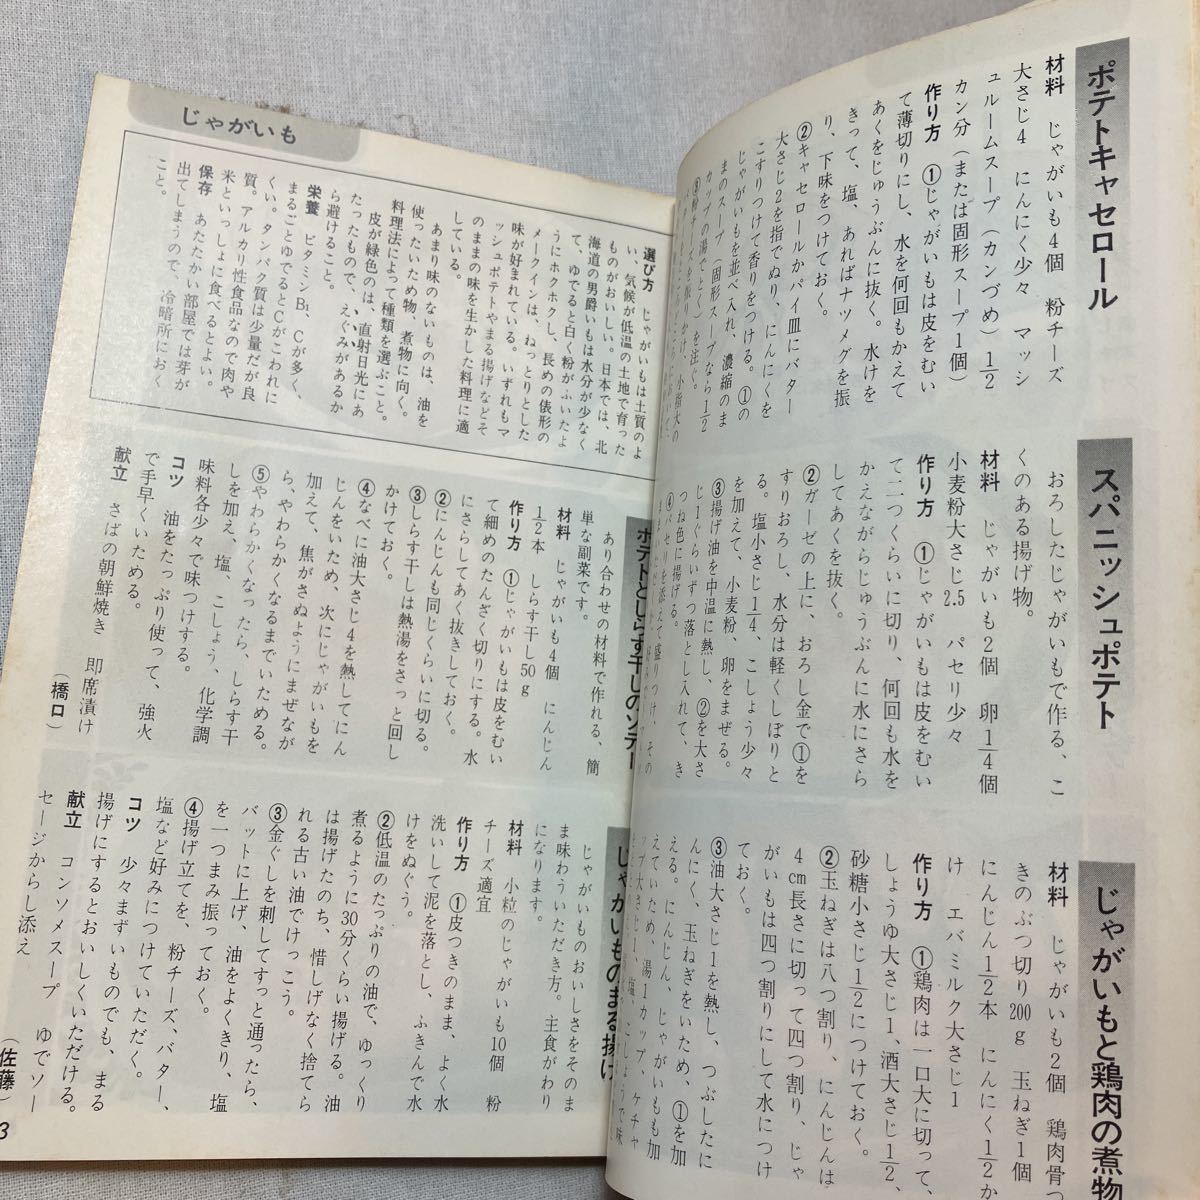 ポテトキャセロール
材料　じゃがいも4個　粉チーズ
大さじ4　にんにく少々　マッシ
ュルームスープ（カンづめ）1/2
カン分（または固形スープ1個）
作り方　①じゃがいもは皮をむい
て薄切りにし、水を何回もかえて
あくをじゅうぶんに抜く。水けを
きって、塩、あればナツメグを振
り、下味をつけておく。
②キャセロールかパイ皿にバター
大さじ2を指でぬり、にんにくを
こすりつけて香りをつける。①の
じゃがいもを並べ入れ、濃縮のま
まのスープ（固形スープなら1/2
カップの湯でとく）を注ぐ。
スパニッシュポテト
おろしたじゃがいもで作る、こ
くのある揚げ物。
材料　じゃがいも2個　卵1/4個
小麦粉大さじ2.5　パセリ少々
作り方　①じゃがいもは皮をむい
て二つくらいに切り、何回も水を
かえながらじゅうぶんに水にさら
してあくを抜く。
②ガーゼの上に、おろし金で①を
すりおろし、水分は軽くしぼりと
る。塩小さじ1/4、こしょう少々
を加えて、小麦粉、卵をまぜる。
③揚げ油を中温に熱し、②を大さ
じ1ぐらいずつ落とし入れて、き
つね色に揚げる。
④パセリを添えて盛りつけ、その
じゃがいもと鶏肉の煮物
材料　じゃがいも2個　鶏肉骨つ
きのぶつ切り200g　玉ねぎ1個
にんじん1/2本　にんにく1/2か
け　エバミルク大さじ1
作り方　①鶏肉は一口大に切って、
しょうゆ大さじ1、酒大さじ1/2、
砂糖小さじ1/2につけておく。
②玉ねぎは八つ割り、にんじんは
4cm長さに切って四つ割り、じゃ
がいもは四つ割りにして水につけ
ておく。
③油大さじ1を熱し、つぶしたに
んにく、玉ねぎをいため、①を加
える。にんじん、じゃがいもも加
えていため、湯1カップ、ケチャ
じゃがいも
選び方　じゃがいもは土質のよ
い、気候が低温の土地で育った
ものがおいしい。日本では、北
海道の男爵いもは水分が少なく
て、ゆでると白く粉がふいたよ
うにホクホクし、長めの俵形の
メークインは、ねっとりとした
味が好まれている。いずれもマ
ッシュポテトやまる揚げなどそ
のままの味を生かした料理に適
している。
あまり味のないものは、油を
使ったいため物、煮物に向く。
料理法によって種類を選ぶこと。
皮が緑色のは、直射日光にあ
たったもので、えぐみがあるか
ら避けること。
栄養　ビタミンB₁、Cが多く、
まるごとゆでるとCがこわれに
くい。タンパク質は少量だが良
質。アルカリ性食品なので肉や
米といっしょに食べるとよい。
保存　あたたかい部屋では芽が
出てしまうので、冷暗所におく
こと。
ポテトとしらす干しのソテー
あり合わせの材料で作れる、簡
単な副菜です。
材料　じゃがいも4個　にんじん
1/2本　しらす干し50g
作り方　①じゃがいもは皮をむい
て細めのたんざく切りにする。水
にさらしてあく抜きしておく。
②にんじんも同じくらいに切る。
③しらす干しは熱湯をさっと回し
かけておく。
④なべに油大さじ4を熱してにん
じんをいため、次にじゃがいもを
加えて、焦がさぬようにまぜなが
ら、やわらかくなるまでいためる。
⑤やわらかくなったら、しらす干
しを加え、塩、こしょう、化学調
味料各少々で味つけする。
コツ　油をたっぷり使って、強火
で手早くいためる。
献立　さばの朝鮮焼き　即席漬け
（橋口）
じゃがいものまる揚げ
じゃがいものおいしさをそのま
ま味わういただき方。主食がわり
になります。
材料　小粒のじゃがいも10個　粉
チーズ適宜
作り方　①皮つきのまま、よく水
洗いして泥を落とし、ふきんで水
けをぬぐう。
②低温のたっぷりの油で、ゆっくり
煮るように30分くらい揚げる。油
は揚げたのち、惜しげなく捨てら
れる古い油でけっこう。
③金ぐしを刺してすっと通ったら、
バットに上げ、油をよくきり、塩
を一つまみ振っておく。
④揚げ立てを、粉チーズ、バター、
塩など好みにつけていただく。
コツ　少々まずいものでも、まる
揚げにするとおいしくいただける。
献立　コンソメスープ　ゆでソー
セージからし添え
（佐藤）
3